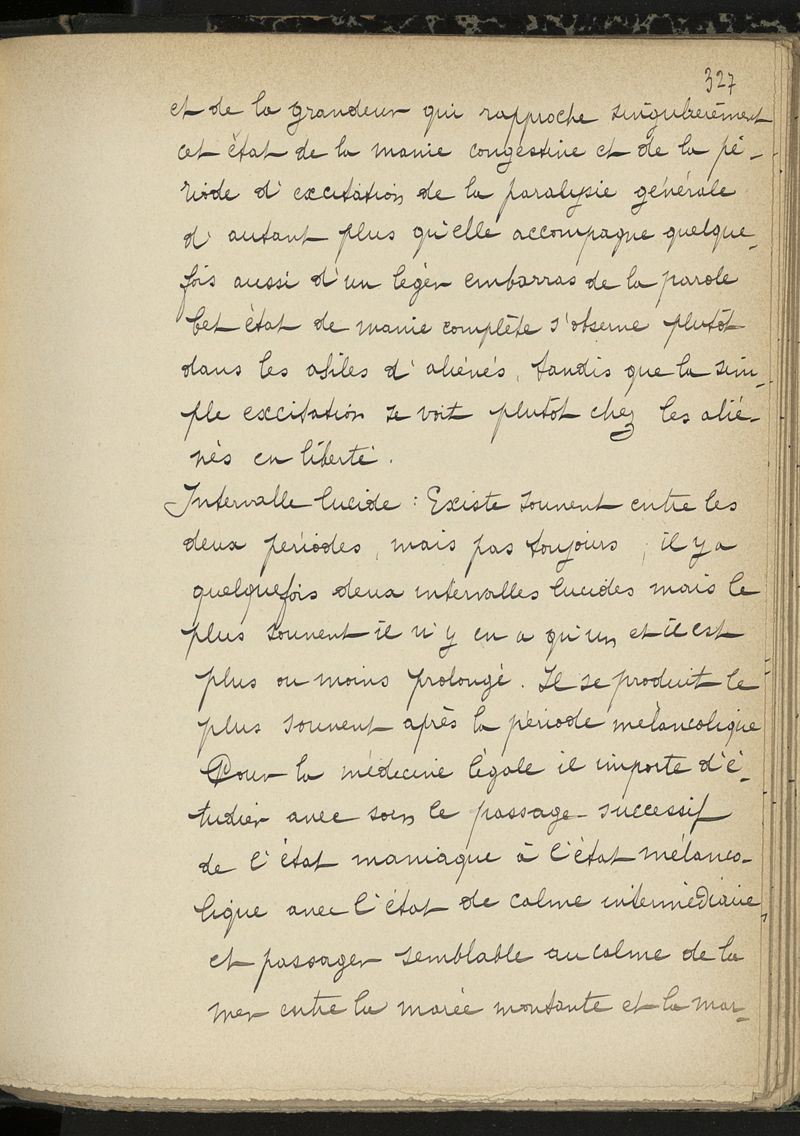 327
et de la grandeur qui rapproche singulièrement
cet état de la manie congestive et de la pé-
riode d'excitation de la paralysie générale
d'autant plus qu'elle accompagne quelque-
fois aussi d'un léger embarras de la parole
Cet état de manie complète s'observe plutôt
dans les asiles d'aliénés, tandis que la sim-
ple excitation se voit plutôt chez les alié-
nés en liberté.
Intervalle lucide : Existe souvent entre les
deux périodes, mais pas toujours, il y a
quelquefois deux intervalles lucides mais le
plus souvent il n'y en a qu'un et il est
plus ou moins prolongé. Il se produit le
plus souvent après la période mélancolique
Pour la médecine légale il importe d'é-
tudier avec soin le passage successif
de l'état maniaque à l'état mélanco-
lique avec l'état de calme intermédiaire,
et passager semblable au calme de la
mer entre la marée montante et la mar-